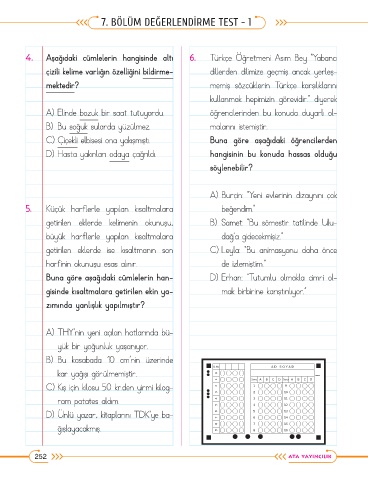 7. BÖLÜM DEĞERLENDİRME TEST - 1
4. Aşağıdaki cümlelerin hangisinde altı
çizili kelime varlığın özelliğini bildirme-
mektedir?
A) Elinde bozuk bir saat tutuyordu.
B) Bu soğuk sularda yüzülmez.
C) Çiçekli elbisesi ona yakışmıştı.
D) Hasta yakınları odaya çağrıldı.
5. Küçük harflerle yapılan kısaltmalara
getirilen eklerde kelimenin okunuşu,
büyük harflerle yapılan kısaltmalara
getirilen eklerde ise kısaltmanın son
harfinin okunuşu esas alınır.
Buna göre aşağıdaki cümlelerin han-
gisinde kısaltmalara getirilen ekin ya-
zımında yanlışlık yapılmıştır?
A) THY'nin yeni açılan hatlarında bü-
yük bir yoğunluk yaşanıyor.
B) Bu kasabada 10 cm'nin üzerinde
kar yağışı görülmemiştir.
C) Kış için kilosu 50 kr.den yirmi kilog-
ram patates aldım.
D) Ünlü yazar, kitaplarını TDK'ye ba-
ğışlayacakmış.
6. Türkçe Öğretmeni Asım Bey "Yabancı
dillerden dilimize geçmiş ancak yerleş-
memiş sözcüklerin Türkçe karşılıklarını
kullanmak hepimizin görevidir." diyerek
öğrencilerinden bu konuda duyarlı ol-
malarını istemiştir.
Buna göre aşağıdaki öğrencilerden
hangisinin bu konuda hassas olduğu
söylenebilir?
A) Burçin: "Yeni evlerinin dizaynını çok
beğendim."
B) Samet: "Bu sömestir tatilinde Ulu-
dağ'a gidecekmişiz."
C) Leyla: "Bu animasyonu daha önce
de izlemiştim."
D) Erhan: "Tutumlu olmakla cimri ol-
mak birbirine karıştırılıyor."
AD SOYAD
252
ATA YAYINCILIK